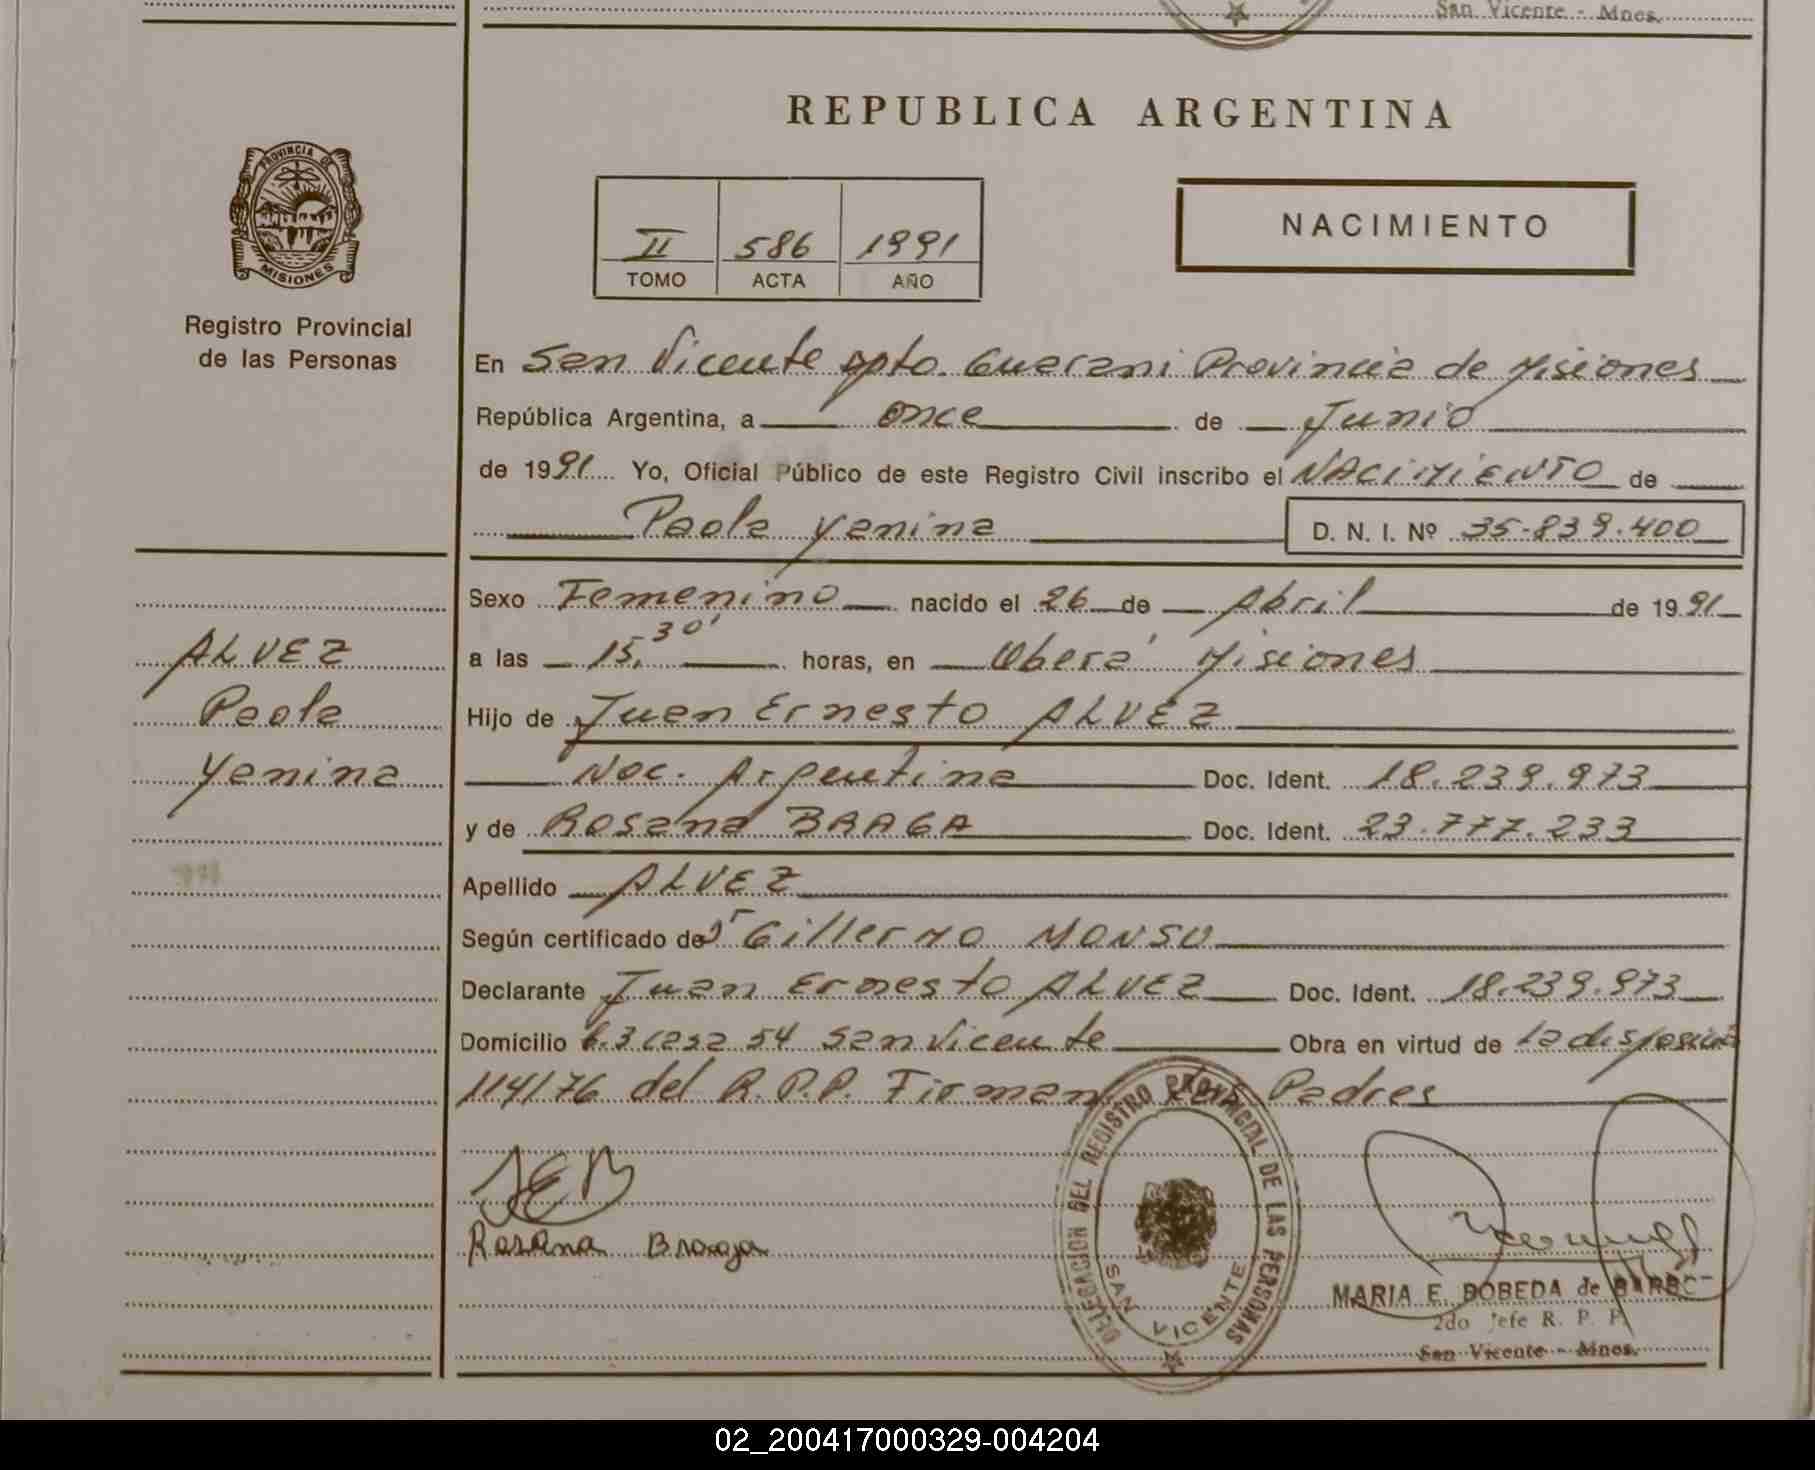 San Vicente - Mnes.
REPUBLICA ARGENTINA
PROVINCIA DE
MISIONES
II 586 1991
TOMO ACTA AÑO
NACIMIENTO
Registro Provincial
de las Personas
En San Vicente Dpto. Guarani Provincia de Misiones
República Argentina, a once de Junio
de 1991 Yo, Oficial Público de este Registro Civil inscribo el NACIMIENTO de
Paola Yanina D. N. I. Nº 35.839.400
Sexo Femenino nacido el 26 de Abril de 1991
a las 15,30' horas, en Oberá Misiones
Hijo de Juan Ernesto ALVEZ
Nac. Argentina Doc. Ident. 18.239.973
y de Rosana BRAGA Doc. Ident. 23.777.233
Apellido ALVEZ
Según certificado de Gillermo MONSU
Declarante Juan Ernesto ALVEZ Doc. Ident. 18.239.973
Domicilio 6.3 casa 54 San Vicente Obra en virtud de la
114/76 del R.P.P. Firman Padres
ALVEZ
Paola
Yanina
JEB
Rosana Braga
DELEGACION DEL REGISTRO PROVINCIAL DE LAS PERSONAS
SAN VICENTE
MARIA E. BOBEDA de
2do Jefe R. P. P.
San Vicente - Mnes.
02_200417000329-004204